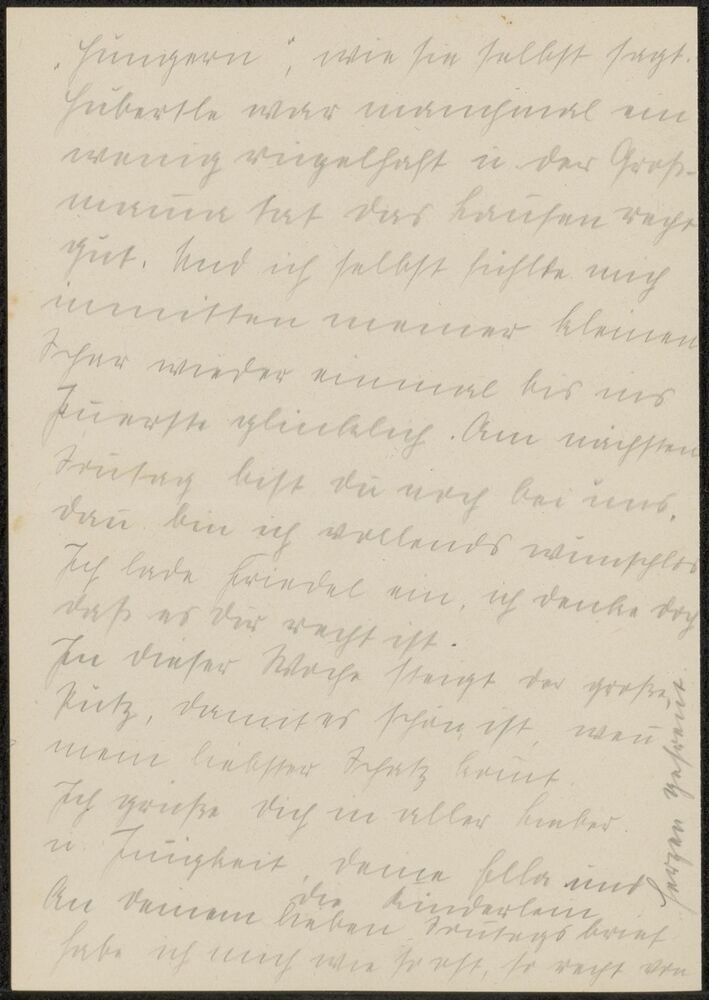 „Hungern", wie sie selbst sagt.
Hubertle war manchmal ein
wenig riegelhaft u. der Groß-
mama tat das Laufen recht
gut. Und ich selbst fühlte mich
inmitten meiner kleinen
Schar wieder einmal bis ins
Innerste glücklich. Am nächsten
Sonntag bist Du noch bei uns,
dann bin ich vollends wunschlos
Ich lade Friedel ein, ich denke doch
daß es Dir recht ist.
In dieser Woche steigt der große
Putz, damit es schön ist, wenn
mein liebster Schatz kommt.
Ich grüße Dich in aller Liebe
u. Innigkeit, Deine Ella und
die Kinderlein
An Deinem lieben Sonntagsbrief
habe ich mich wie so oft, so recht von
Herzen gefreut